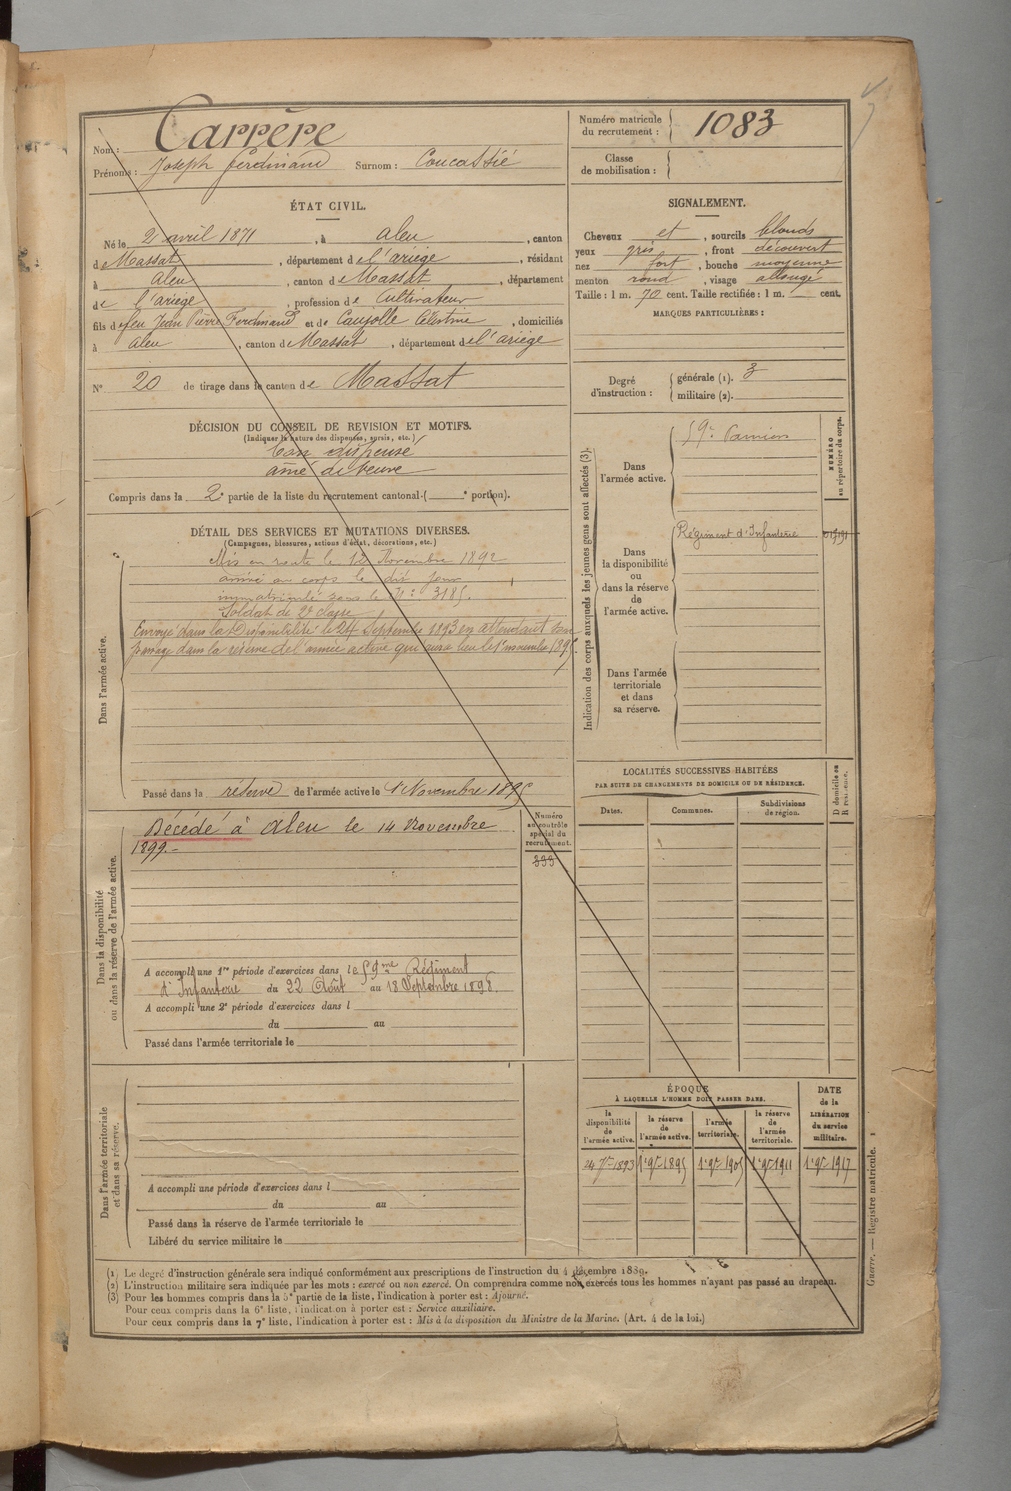 Nom : Carrère
Prénoms : Joseph Ferdinand Surnom : Coucassié
Numéro matricule du recrutement : 1083
Classe de mobilisation :
ÉTAT CIVIL.
Né le 2 avril 1871, à Aleu, canton
de Massat, département de l'ariège, résidant
à Aleu, canton de Massat, département
de l'ariege, profession de Cultivateur
fils de feu Jean Pierre Ferdinand et de Caujolle Célestine, domiciliés
à Aleu, canton de Massat, département de l'ariège
N° 20 de tirage dans le canton de Massat
SIGNALEMENT.
Cheveux et, sourcils blonds
yeux gris, front découvert
nez fort, bouche moyenne
menton rond, visage allongé
Taille : 1 m. 70 cent. Taille rectifiée : 1 m. cent.
MARQUES PARTICULIÈRES :
Degré d'instruction :
générale (1). 3
militaire (2).
DÉCISION DU CONSEIL DE REVISION ET MOTIFS.
(Indiquer la nature des dispenses, sursis, etc.)
Bon dispensé
aîné de veuve
Compris dans la 2e partie de la liste du recrutement cantonal (e portion).
DÉTAIL DES SERVICES ET MUTATIONS DIVERSES.
(Campagnes, blessures, actions d'éclat, décorations, etc.)
Dans l'armée active.
Mis en route le 12 Novembre 1892
arrivé au corps le dit jour
immatriculé sous le N° 3185.
Soldat de 2e classe
Envoyé dans la Disponibilité le 24 Septembre 1893 en attendant son
passage dans la réserve de l'armée active qui aura lieu le 1er novembre 1895.
Passé dans la réserve de l'armée active le 1 Novembre 1895
Indication des corps auxquels les jeunes gens sont affectés (3).
NUMÉRO au répertoire du corps.
Dans l'armée active.
59e Pamiers
Dans la disponibilité ou dans la réserve de l'armée active.
Régiment d'Infanterie
Dans l'armée territoriale et dans sa réserve.
Dans la disponibilité ou dans la réserve de l'armée active.
Numéro au contrôle spécial du recrutement.
333
Décédé à Aleu le 14 Novembre
1899.-
A accompli une 1re période d'exercices dans le 59me Régiment
d'Infanterie du 22 Août au 18 Septembre 1898.
A accompli une 2e période d'exercices dans l
du au
Passé dans l'armée territoriale le
LOCALITÉS SUCCESSIVES HABITÉES
PAR SUITE DE CHANGEMENTS DE DOMICILE OU DE RÉSIDENCE.
Dates. Communes. Subdivisions de région. D domicile ou R résidence.
Dans l'armée territoriale et dans sa réserve.
A accompli une période d'exercices dans l
du au
Passé dans la réserve de l'armée territoriale le
Libéré du service militaire le
ÉPOQUE
À LAQUELLE L'HOMME DOIT PASSER DANS.
la disponibilité de l'armée active. la réserve de l'armée active. l'armée territoriale. la réserve de l'armée territoriale.
DATE de la LIBÉRATION du service militaire.
24 7bre 1893 1er 9bre 1895 1er 9bre 1905 1er 9bre 1911 1er 9bre 1917
(1) Le degré d'instruction générale sera indiqué conformément aux prescriptions de l'instruction du 4 décembre 1889.
(2) L'instruction militaire sera indiquée par les mots : exercé ou non exercé. On comprendra comme non exercés tous les hommes n'ayant pas passé au drapeau.
(3) Pour les hommes compris dans la 5e partie de la liste, l'indication à porter est : Ajourné.
Pour ceux compris dans la 6e liste, l'indication à porter est : Service auxiliaire.
Pour ceux compris dans la 7e liste, l'indication à porter est : Mis à la disposition du Ministre de la Marine. (Art. 4 de la loi.)
Guerre. — Registre matricule. 1